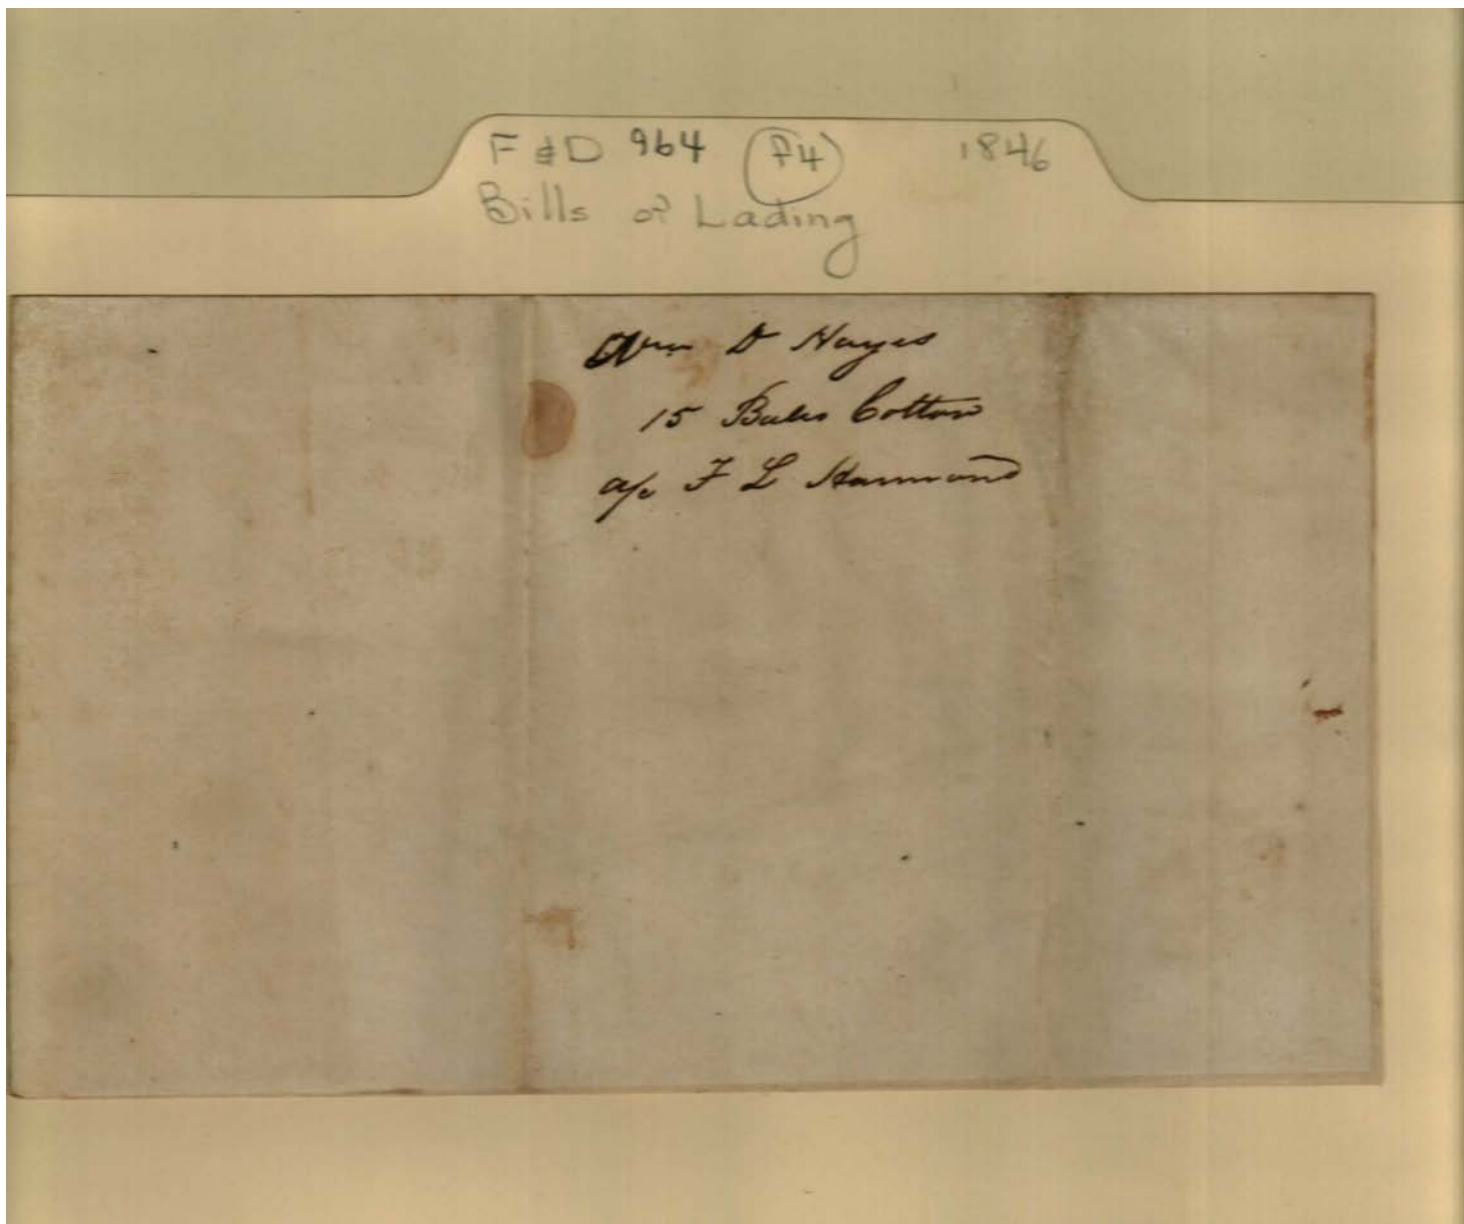 F & D 964 F4 1846
Bills of Lading
Wm D Hayes
15 Bales Cotton
a/c F L Hammond